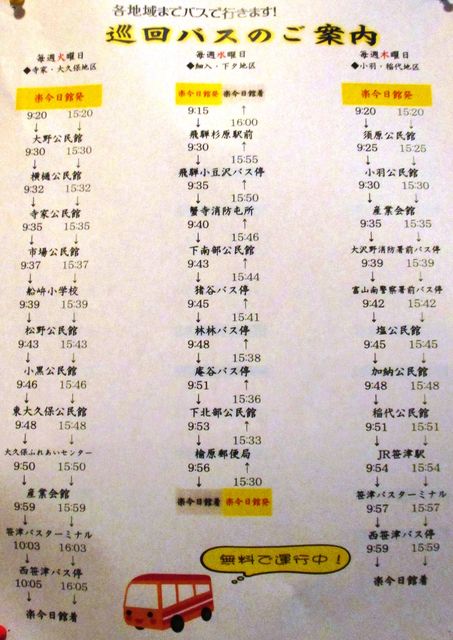 各地域までバスで行きます!
巡回バスのご案内
毎週火曜日
◆寺家・大久保地区
楽今日館発
9:20 15:20
↓ ↓
大野公民館
9:30 15:30
↓ ↓
横樋公民館
9:32 15:32
↓ ↓
寺家公民館
9:35 15:35
↓ ↓
市場公民館
9:37 15:37
↓ ↓
船峅小学校
9:39 15:39
↓ ↓
松野公民館
9:43 15:43
↓ ↓
小黒公民館
9:46 15:46
↓ ↓
東大久保公民館
9:48 15:48
↓ ↓
大久保ふれあいセンター
9:50 15:50
↓ ↓
産業会館
9:59 15:59
↓ ↓
笹津バスターミナル
10:03 16:03
↓ ↓
西笹津バス停
10:05 16:05
↓ ↓
楽今日館着
毎週水曜日
◆細入・下夕地区
楽今日館発 楽今日館着
9:15 ↑
↓ 16:00
飛騨杉原駅前
9:30 ↑
↓ 15:55
飛騨小豆沢バス停
9:35 ↑
↓ 15:50
蟹寺消防屯所
9:40 ↑
↓ 15:46
下南部公民館
9:43 ↑
↓ 15:44
猪谷バス停
9:45 ↑
↓ 15:41
林林バス停
9:48 ↑
↓ 15:38
庵谷バス停
9:51 ↑
↓ 15:36
下北部公民館
9:53 ↑
↓ 15:33
楡原郵便局
9:56 ↑
↓ 15:30
楽今日館着 楽今日館発
毎週木曜日
◆小羽・稲代地区
楽今日館発
9:20 15:20
↓ ↓
須原公民館
9:25 15:25
↓ ↓
小羽公民館
9:30 15:30
↓ ↓
産業会館
9:35 15:35
↓ ↓
大沢野消防署前バス停
9:39 15:39
↓ ↓
富山南警察署前バス停
9:42 15:42
↓ ↓
塩公民館
9:45 15:45
↓ ↓
加納公民館
9:48 15:48
↓ ↓
稲代公民館
9:51 15:51
↓ ↓
JR笹津駅
9:54 15:54
↓ ↓
笹津バスターミナル
9:57 15:57
↓ ↓
西笹津バス停
9:59 15:59
↓ ↓
楽今日館着
無料で運行中!